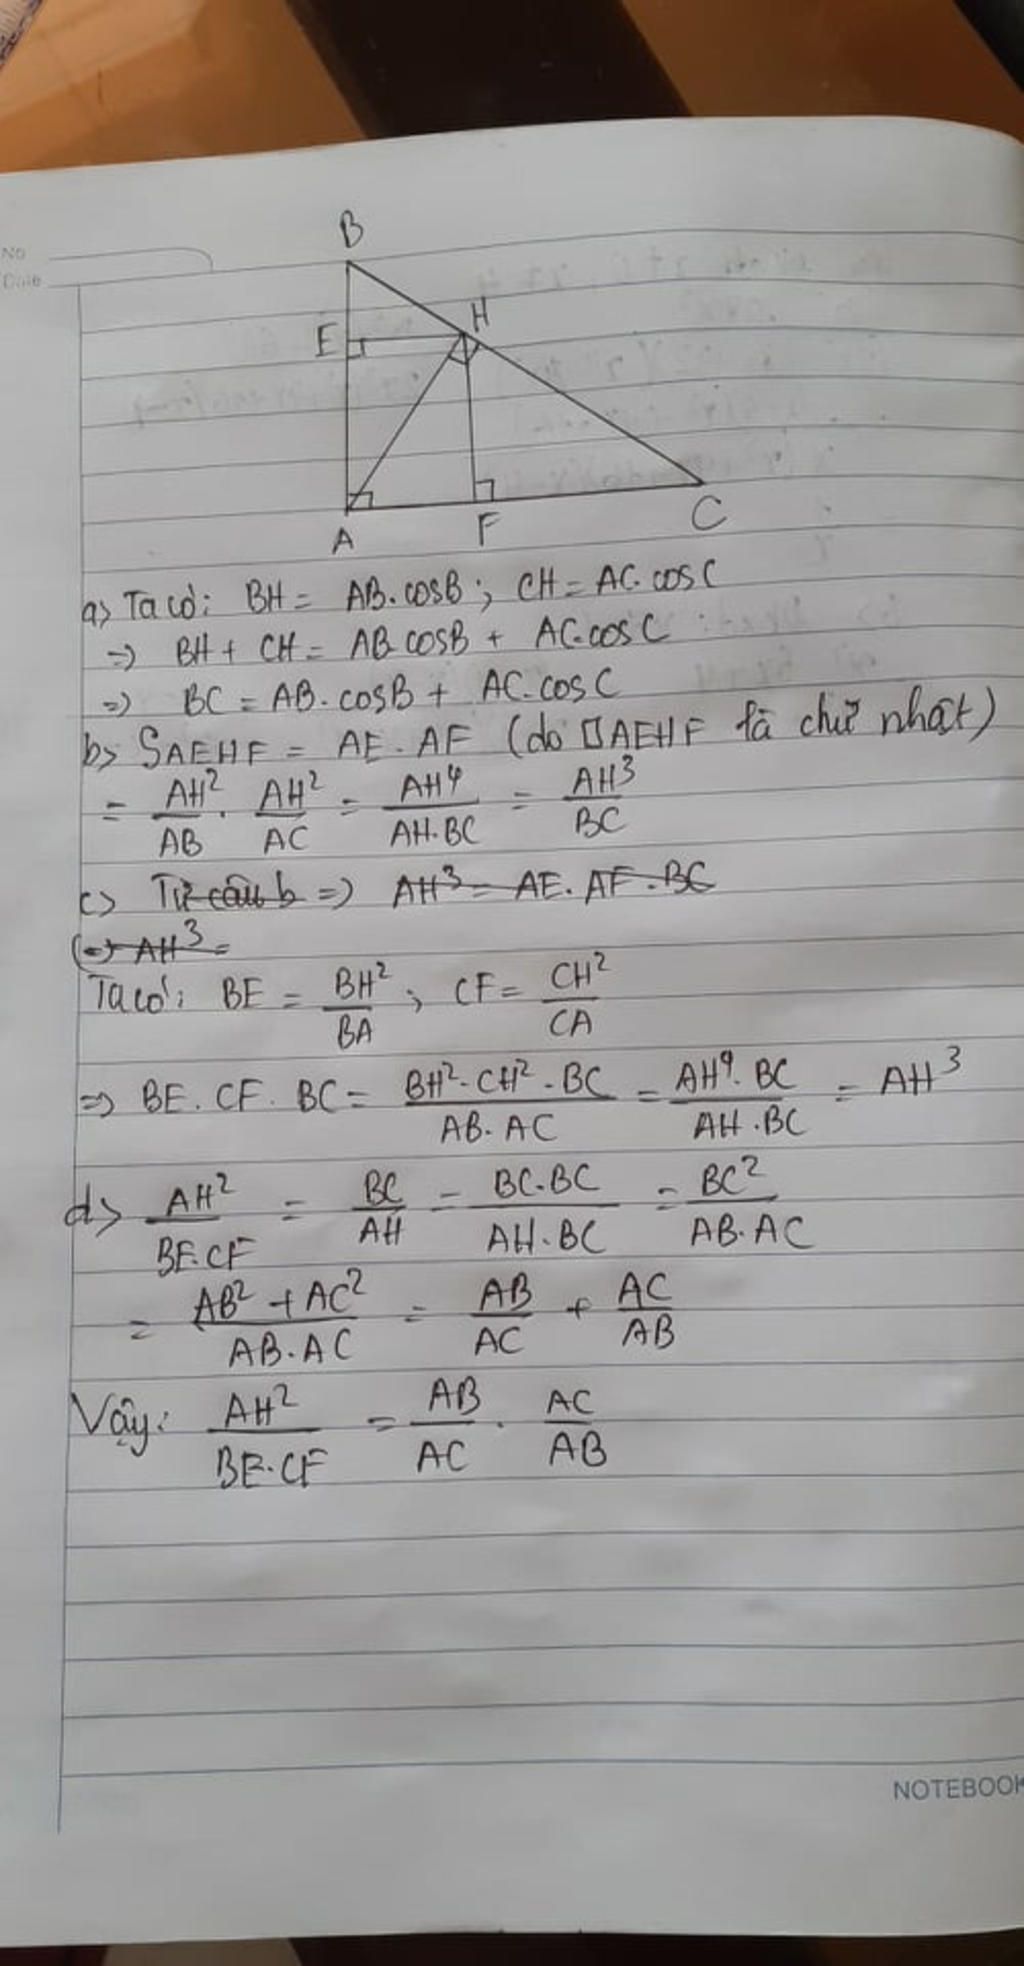 No
Date
B
E H
A F C
a) Ta có: BH = AB.cosB; CH = AC.cosC
=> BH + CH = AB.cosB + AC.cosC
=> BC = AB.cosB + AC.cosC
b) SAEHF = AE.AF (do □AEHF là chữ nhật)
= AH²/AB . AH²/AC = AH⁴/AH.BC = AH³/BC
c) Từ câu b => AH³ = AE.AF.BC
(=) AH³ =
Ta có: BE = BH²/BA; CF = CH²/CA
=> BE.CF.BC = BH².CH².BC/AB.AC = AH⁴.BC/AH.BC = AH³
d) AH²/BE.CF = BC/AH = BC.BC/AH.BC = BC²/AB.AC
= AB² + AC²/AB.AC = AB/AC + AC/AB
Vậy: AH²/BE.CF = AB/AC . AC/AB
NOTEBOOK